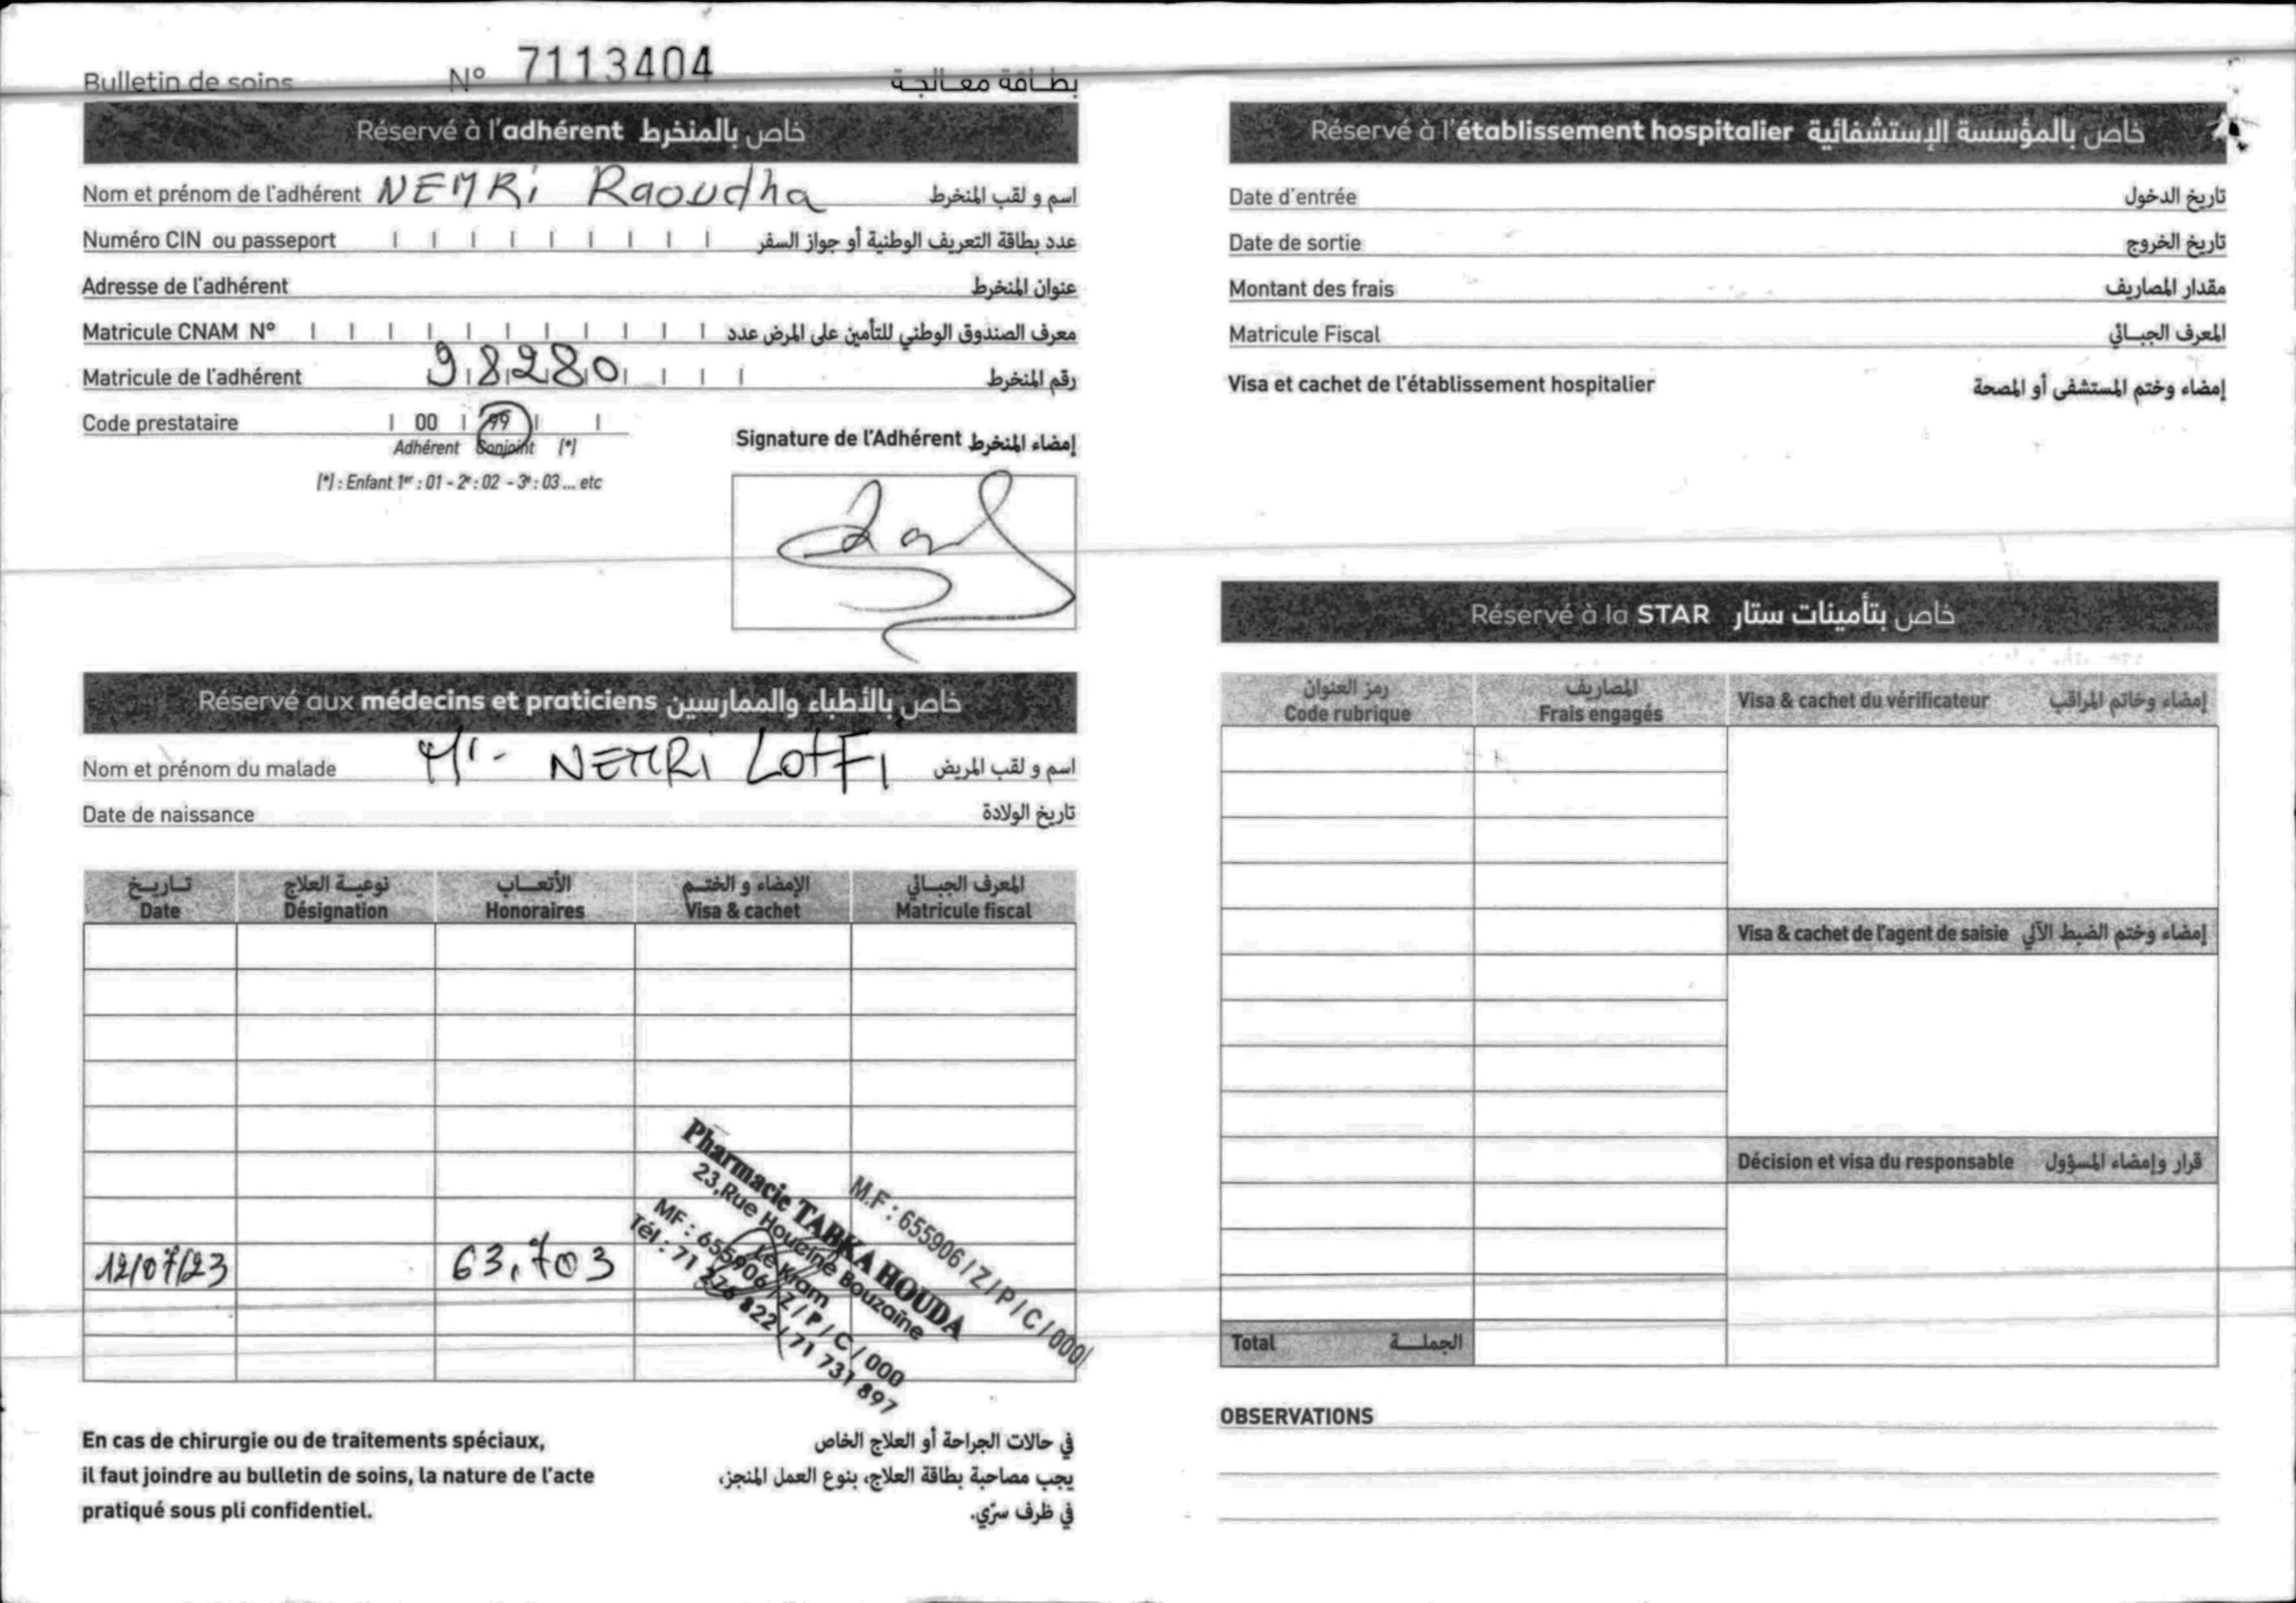 Bulletin de soins N° 7113404 بطاقة معالجة
Réservé à l'adhérent خاص بالمنخرط
Nom et prénom de l'adhérent NEMRi Raoudha اسم و لقب المنخرط
Numéro CIN ou passeport عدد بطاقة التعريف الوطنية أو جواز السفر
Adresse de l'adhérent عنوان المنخرط
Matricule CNAM N° معرف الصندوق الوطني للتأمين على المرض عدد
Matricule de l'adhérent 98280 رقم المنخرط
Code prestataire 00 99
Adhérent Conjoint (*)
(*) : Enfant 1er : 01 - 2e : 02 - 3e : 03 ... etc
Signature de l'Adhérent إمضاء المنخرط
Réservé aux médecins et praticiens خاص بالأطباء والممارسين
Nom et prénom du malade NEMRi LOTFI اسم و لقب المريض
Date de naissance تاريخ الولادة
تاريخ نوعية العلاج الأتعاب الإمضاء و الختم المعرف الجبائي
Date Désignation Honoraires Visa & cachet Matricule fiscal
12/07/23 63,703
Pharmacie TABKA HOUDA
23,Rue Houcine Bouzaine
Le Kram
MF : 655906 / Z / P / C / 000
Tél : 71 276 822 / 71 731 897
M.F : 655906 / Z / P / C / 000/
En cas de chirurgie ou de traitements spéciaux,
il faut joindre au bulletin de soins, la nature de l'acte
pratiqué sous pli confidentiel.
في حالات الجراحة أو العلاج الخاص
يجب مصاحبة بطاقة العلاج، بنوع العمل المنجز،
في ظرف سرّي.
Réservé à l'établissement hospitalier خاص بالمؤسسة الإستشفائية
Date d'entrée تاريخ الدخول
Date de sortie تاريخ الخروج
Montant des frais مقدار المصاريف
Matricule Fiscal المعرف الجبائي
Visa et cachet de l'établissement hospitalier إمضاء وختم المستشفى أو المصحة
Réservé à la STAR خاص بتأمينات ستار
رمز العنوان المصاريف
Code rubrique Frais engagés Visa & cachet du vérificateur إمضاء وخاتم المراقب
Visa & cachet de l'agent de saisie إمضاء وختم الضبط الآلي
Décision et visa du responsable قرار وإمضاء المسؤول
Total الجملة
OBSERVATIONS